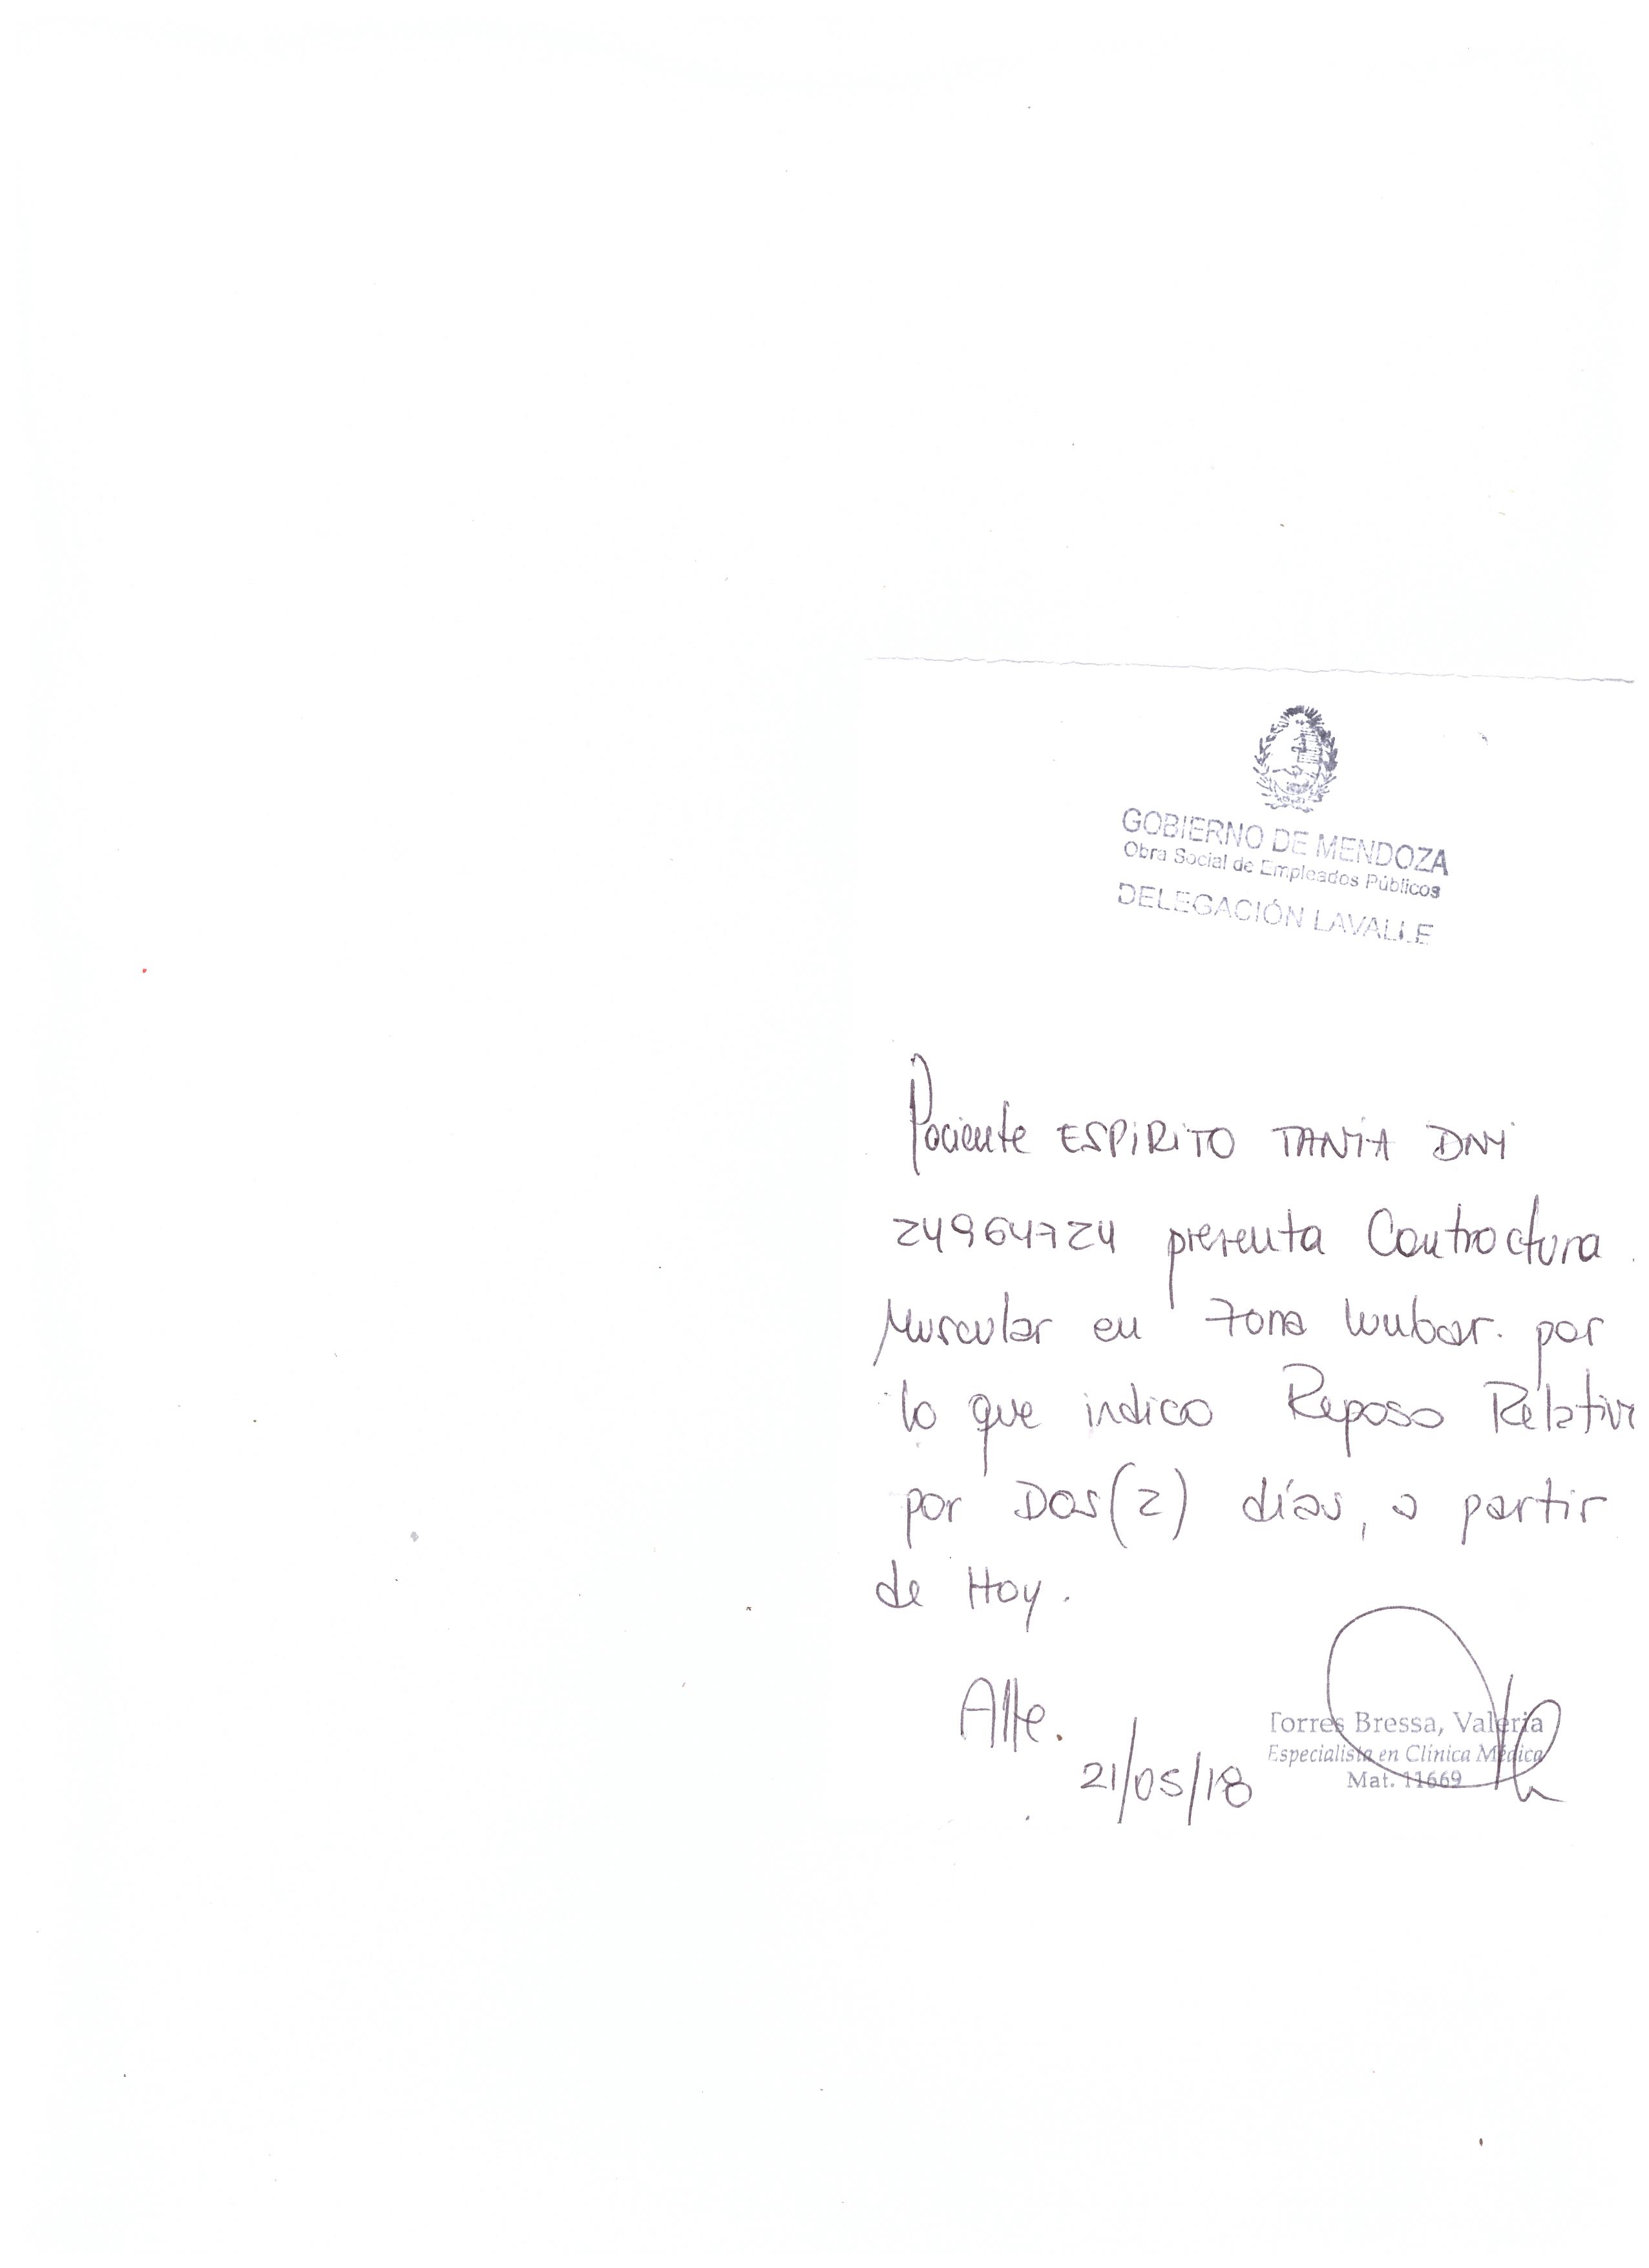 GOBIERNO DE MENDOZA
Obra Social de Empleados Públicos
DELEGACIÓN LAVALLE
Paciente ESPIRITO TANIA DNI
24964724 presenta Contractura
Muscular en zona lumbar. por
lo que indico Reposo Relativ
por Dos (2) días, a partir
de Hoy.
Atte.
21/05/18
Torres Bressa, Valeria
Especialista en Clínica Médica
Mat. 11669